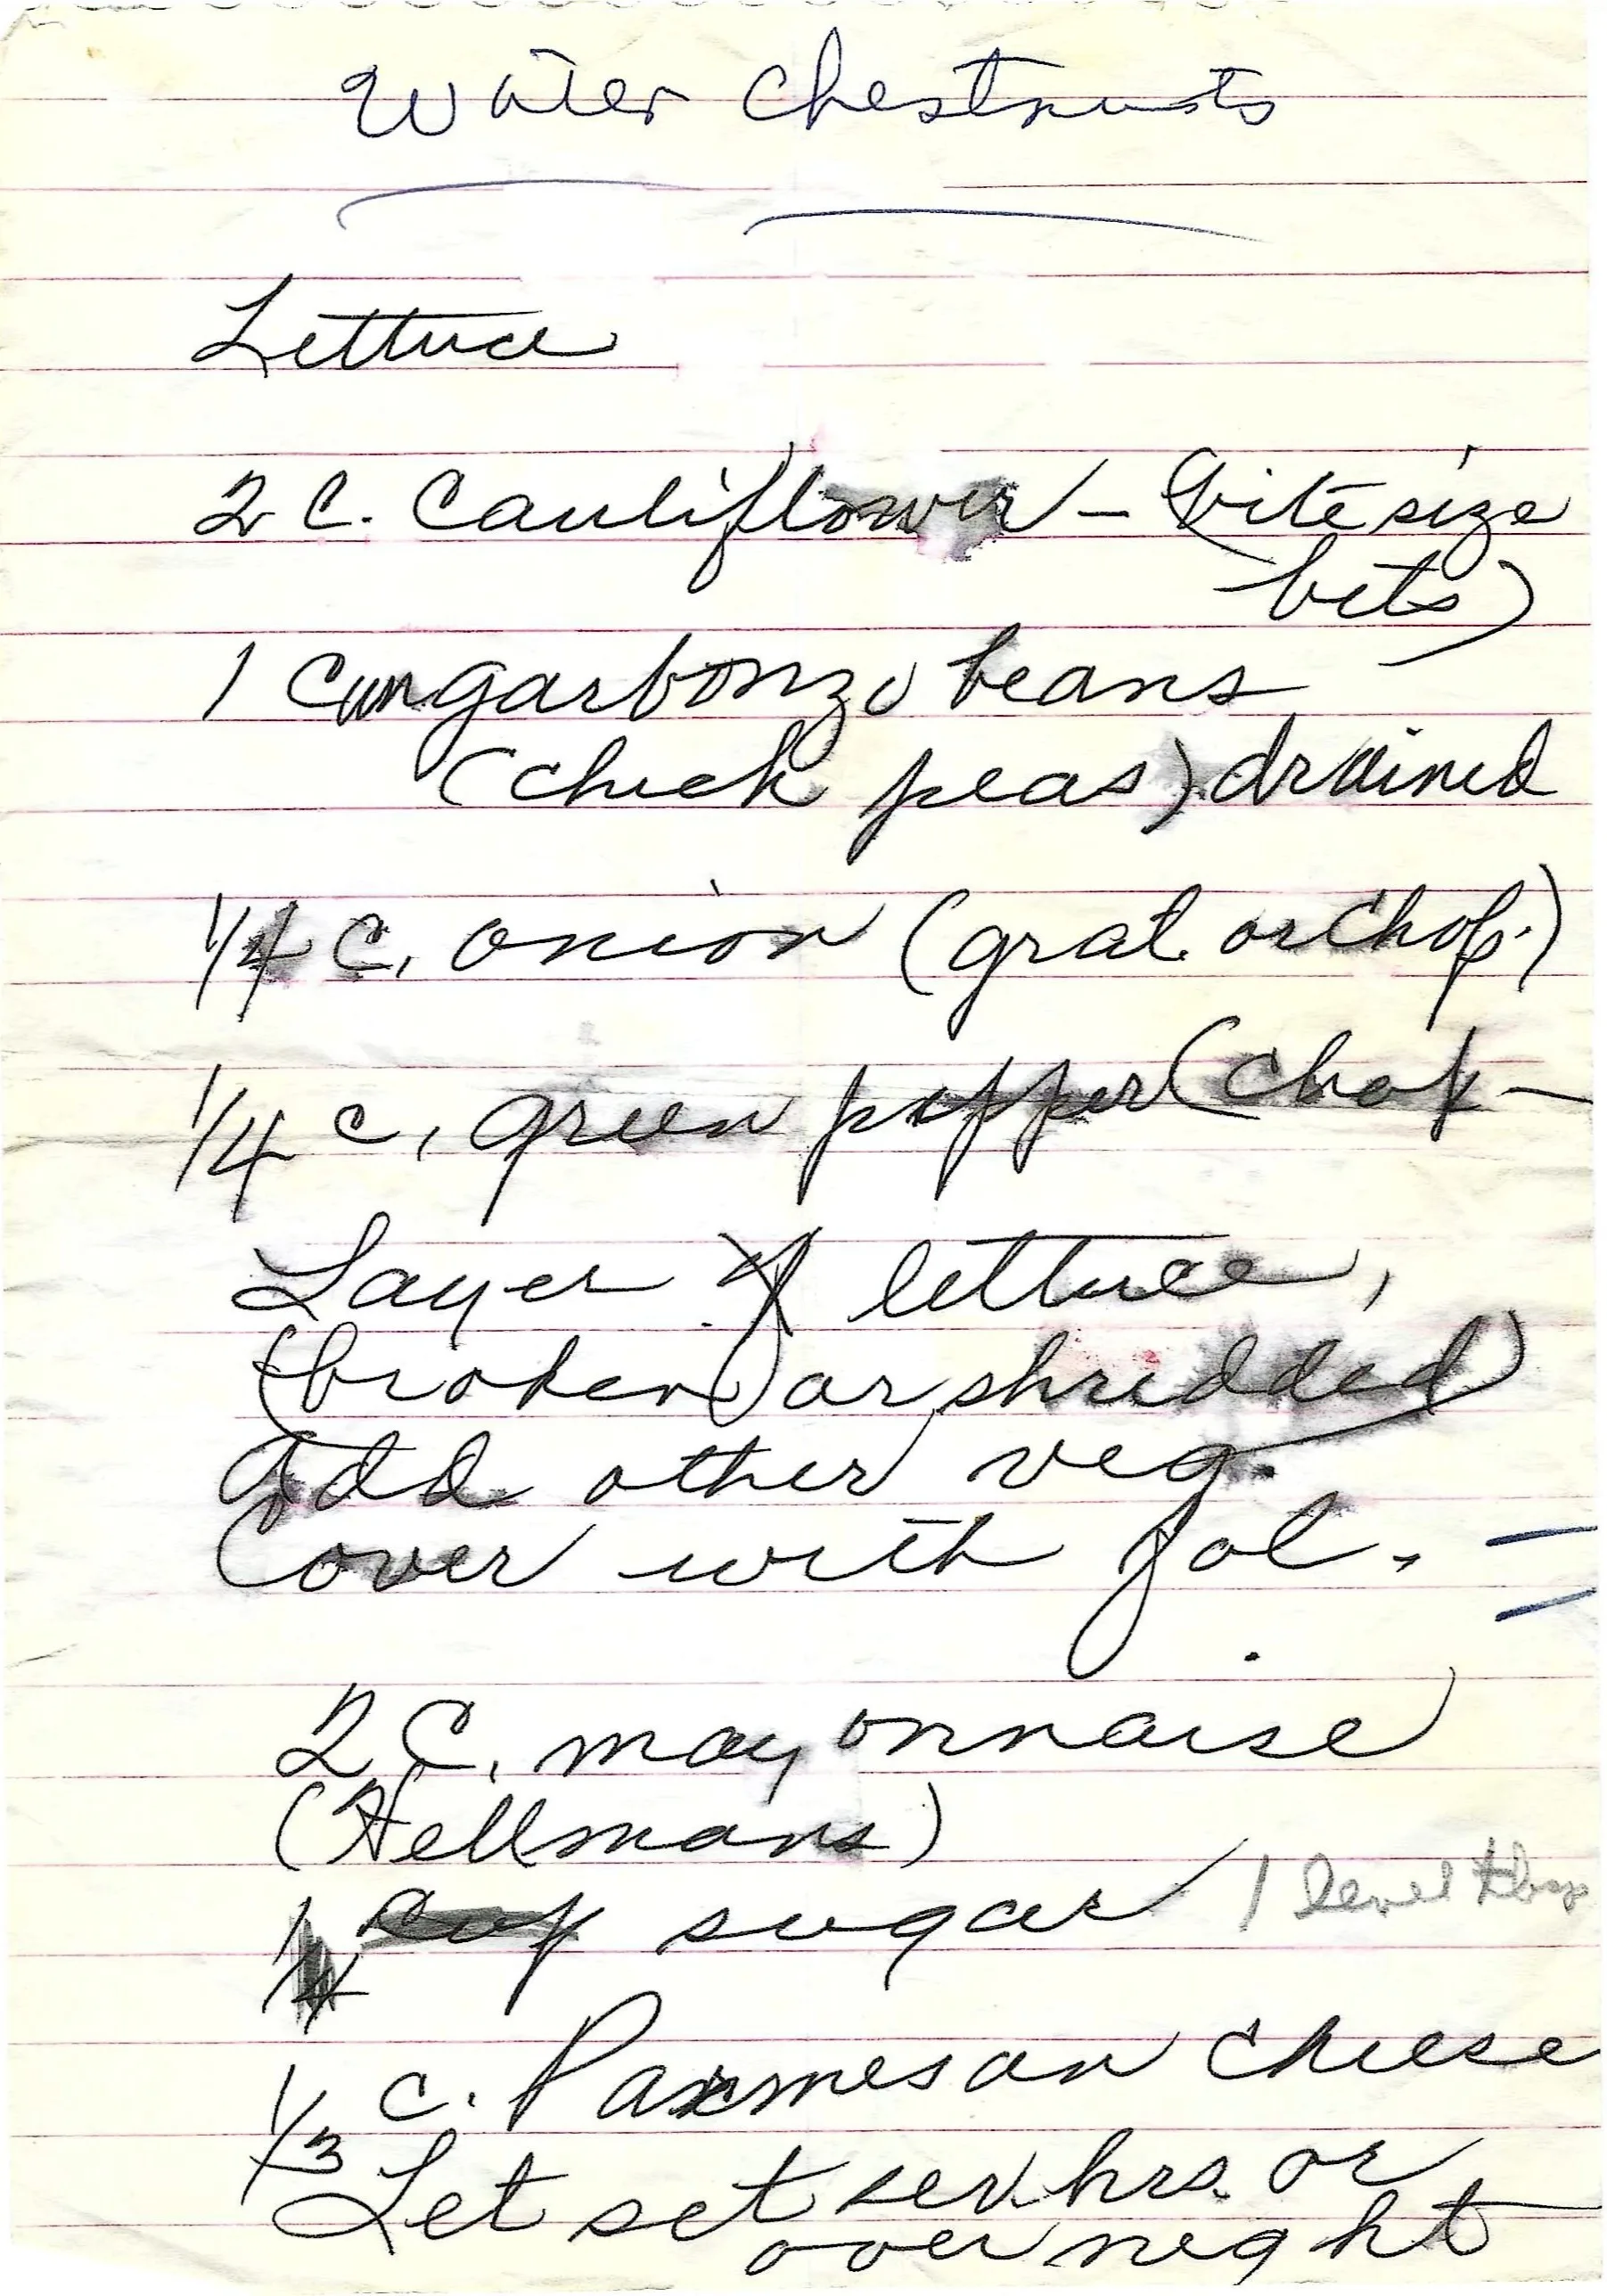 Water Chestnuts
Lettuce
2 C. Cauliflower - (bite size
bits)
1 Can garbonzo beans
(chick peas) drained
1/4 C. onion (grat. or chop.)
1/4 c. green pepper (chop -
Layer of lettuce,
(broken) or shredded)
Add other veg.
Cover with fol. -
2 C. mayonnaise
(Hellmans)
1/4 cup sugar 1 level tbsp
1/3 c. Parmesan cheese
Let set sev. hrs. or
over night